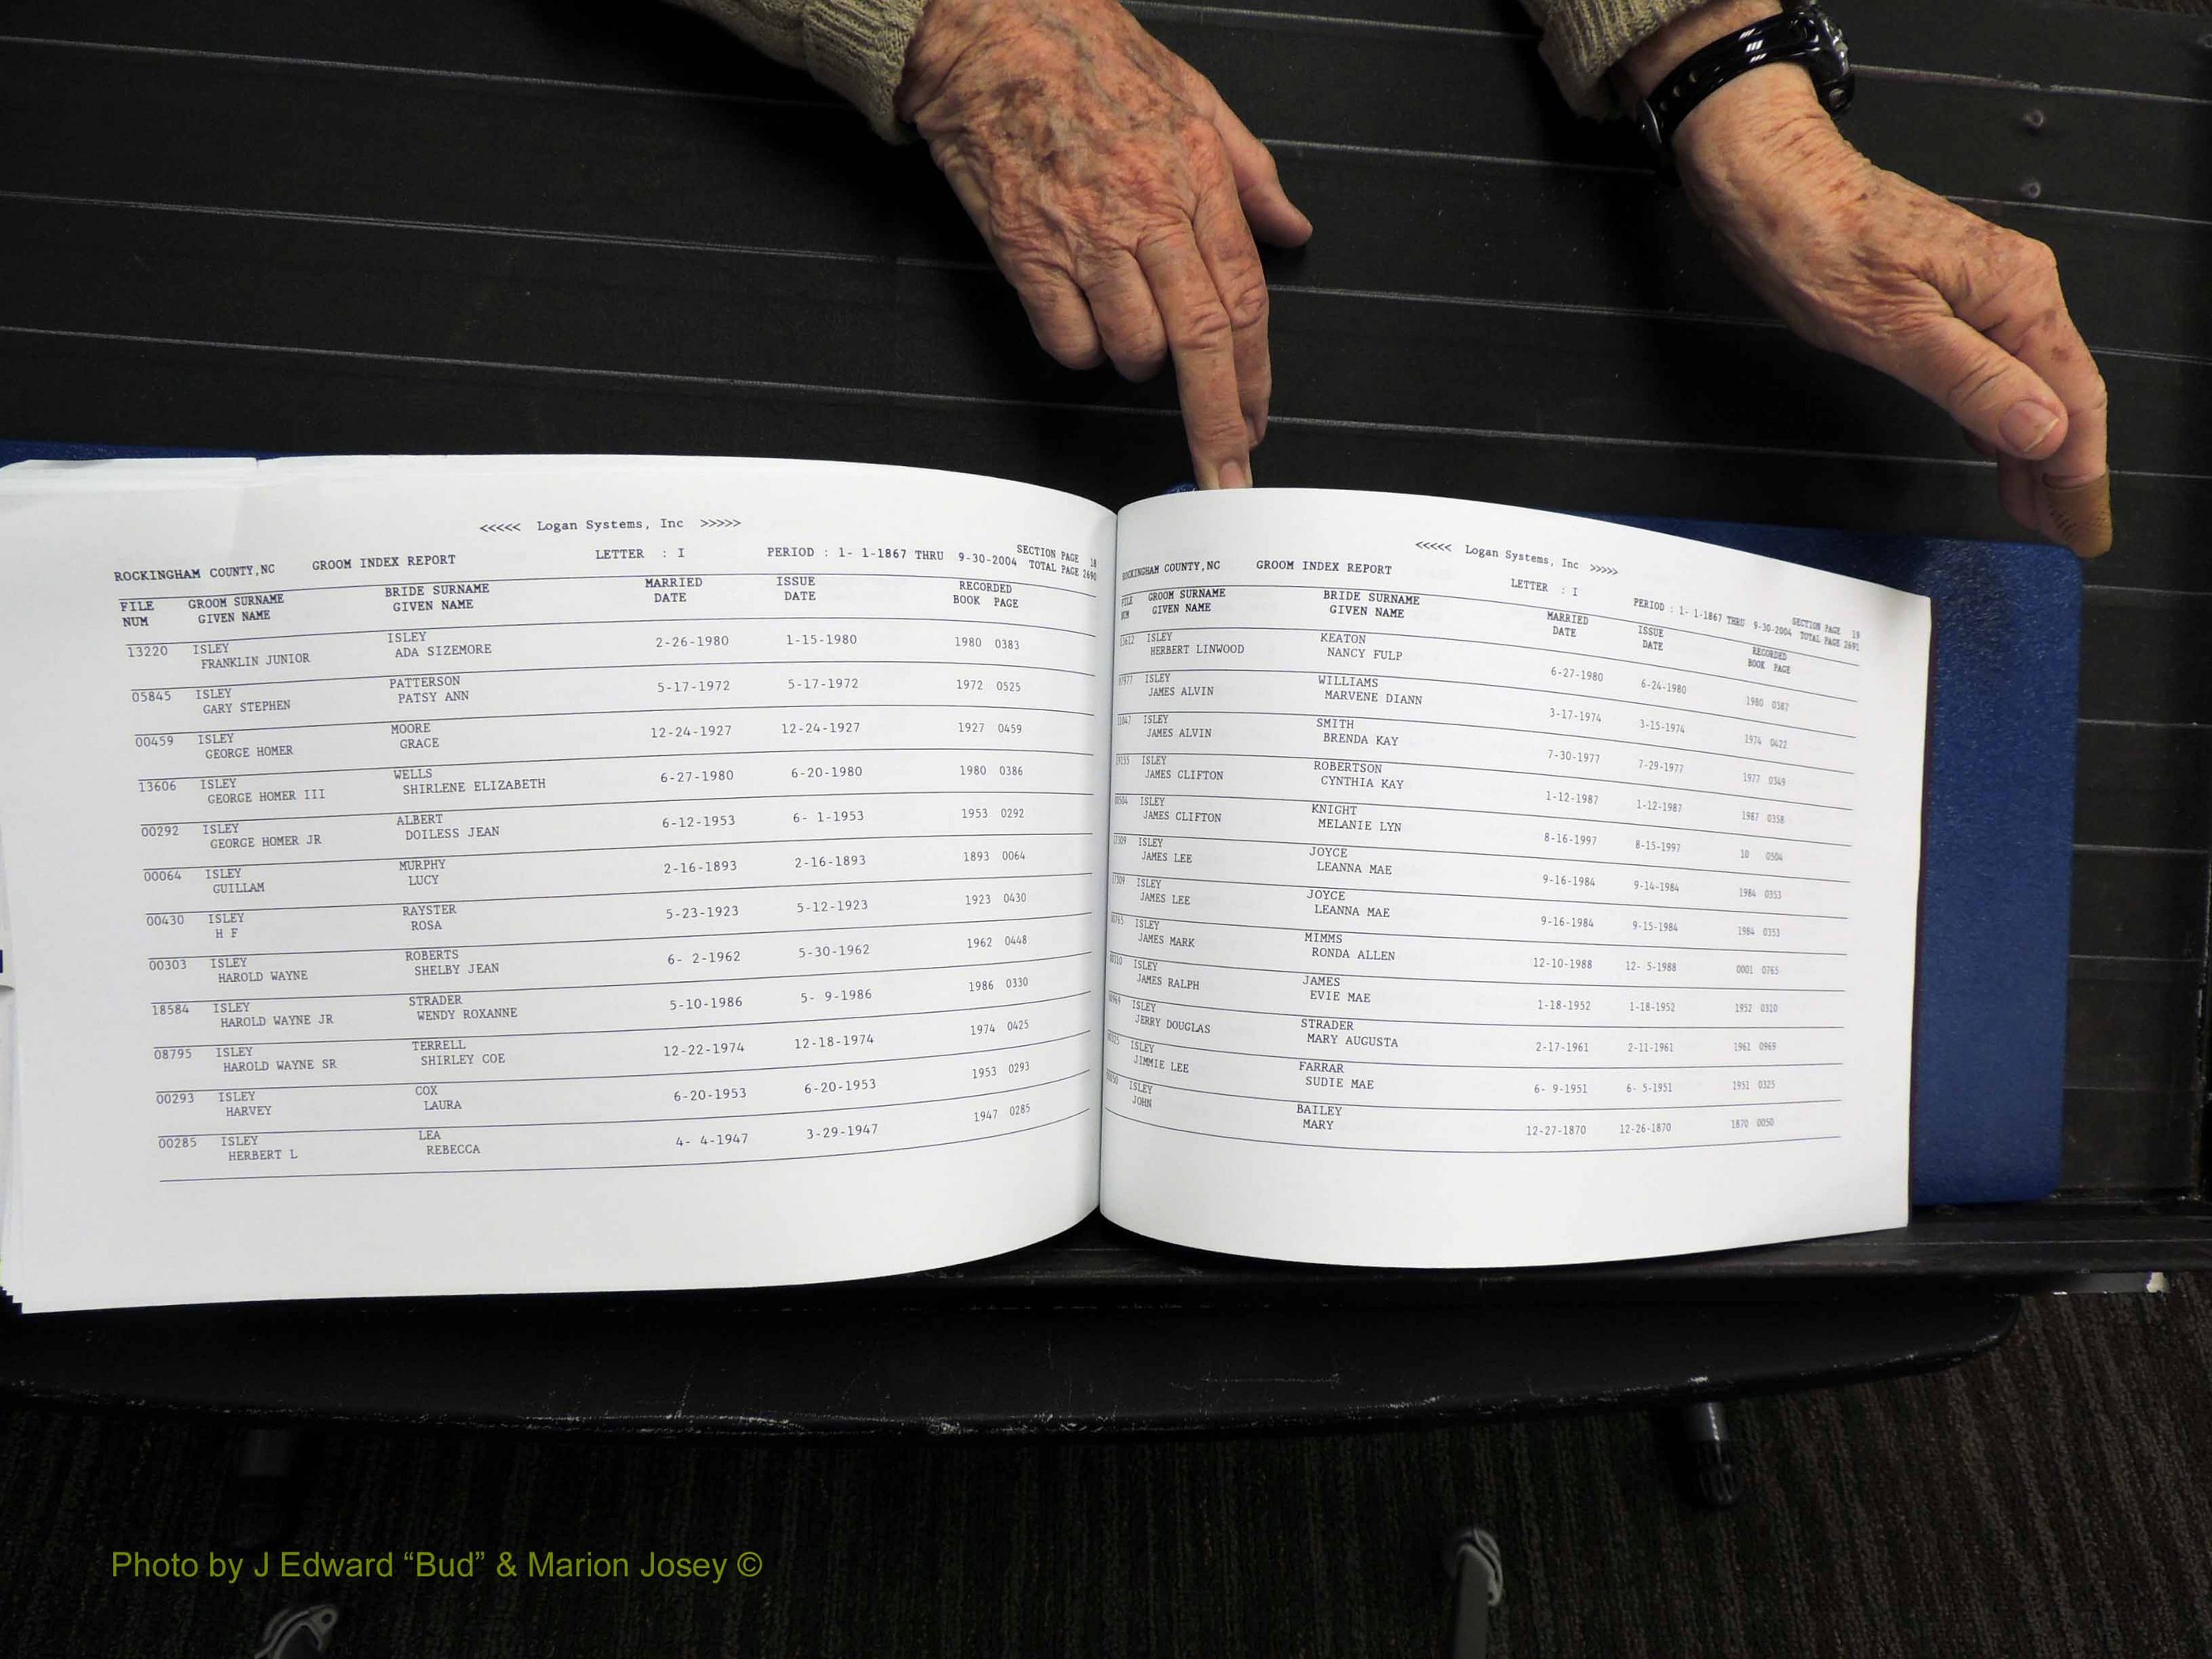 <<<<< Logan Systems, Inc >>>>>
ROCKINGHAM COUNTY,NC GROOM INDEX REPORT LETTER : I PERIOD : 1- 1-1867 THRU 9-30-2004 SECTION PAGE 18
TOTAL PAGE 2690
FILE GROOM SURNAME BRIDE SURNAME MARRIED ISSUE RECORDED
NUM GIVEN NAME GIVEN NAME DATE DATE BOOK PAGE
13220 ISLEY ISLEY 2-26-1980 1-15-1980 1980 0383
FRANKLIN JUNIOR ADA SIZEMORE
05845 ISLEY PATTERSON 5-17-1972 5-17-1972 1972 0525
GARY STEPHEN PATSY ANN
00459 ISLEY MOORE 12-24-1927 12-24-1927 1927 0459
GEORGE HOMER GRACE
13606 ISLEY WELLS 6-27-1980 6-20-1980 1980 0386
GEORGE HOMER III SHIRLENE ELIZABETH
00292 ISLEY ALBERT 6-12-1953 6- 1-1953 1953 0292
GEORGE HOMER JR DOILESS JEAN
00064 ISLEY MURPHY 2-16-1893 2-16-1893 1893 0064
GUILLAM LUCY
00430 ISLEY RAYSTER 5-23-1923 5-12-1923 1923 0430
H F ROSA
00303 ISLEY ROBERTS 6- 2-1962 5-30-1962 1962 0448
HAROLD WAYNE SHELBY JEAN
18584 ISLEY STRADER 5-10-1986 5- 9-1986 1986 0330
HAROLD WAYNE JR WENDY ROXANNE
08795 ISLEY TERRELL 12-22-1974 12-18-1974 1974 0425
HAROLD WAYNE SR SHIRLEY COE
00293 ISLEY COX 6-20-1953 6-20-1953 1953 0293
HARVEY LAURA
00285 ISLEY LEA 4- 4-1947 3-29-1947 1947 0285
HERBERT L REBECCA
<<<<< Logan Systems, Inc >>>>>
ROCKINGHAM COUNTY,NC GROOM INDEX REPORT LETTER : I PERIOD : 1- 1-1867 THRU 9-30-2004 SECTION PAGE 19
TOTAL PAGE 2691
FILE GROOM SURNAME BRIDE SURNAME MARRIED ISSUE RECORDED
NUM GIVEN NAME GIVEN NAME DATE DATE BOOK PAGE
ISLEY KEATON 6-27-1980 6-24-1980 1980 0387
HERBERT LINWOOD NANCY FULP
ISLEY WILLIAMS 3-17-1974 3-15-1974 1974 0422
JAMES ALVIN MARVENE DIANN
ISLEY SMITH 7-30-1977 7-29-1977 1977 0349
JAMES ALVIN BRENDA KAY
ISLEY ROBERTSON 1-12-1987 1-12-1987 1987 0358
JAMES CLIFTON CYNTHIA KAY
ISLEY KNIGHT 8-16-1997 8-15-1997 10 0504
JAMES CLIFTON MELANIE LYN
ISLEY JOYCE 9-16-1984 9-14-1984 1984 0353
JAMES LEE LEANNA MAE
ISLEY JOYCE 9-16-1984 9-15-1984 1984 0353
JAMES LEE LEANNA MAE
ISLEY MIMMS 12-10-1988 12- 5-1988 0001 0765
JAMES MARK RONDA ALLEN
ISLEY JAMES 1-18-1952 1-18-1952 1952 0310
JAMES RALPH EVIE MAE
ISLEY STRADER 2-17-1961 2-11-1961 1961 0969
JERRY DOUGLAS MARY AUGUSTA
ISLEY FARRAR 6- 9-1951 6- 5-1951 1951 0325
JIMMIE LEE SUDIE MAE
ISLEY BAILEY 12-27-1870 12-26-1870 1870 0050
JOHN MARY
Photo by J Edward “Bud” & Marion Josey ©